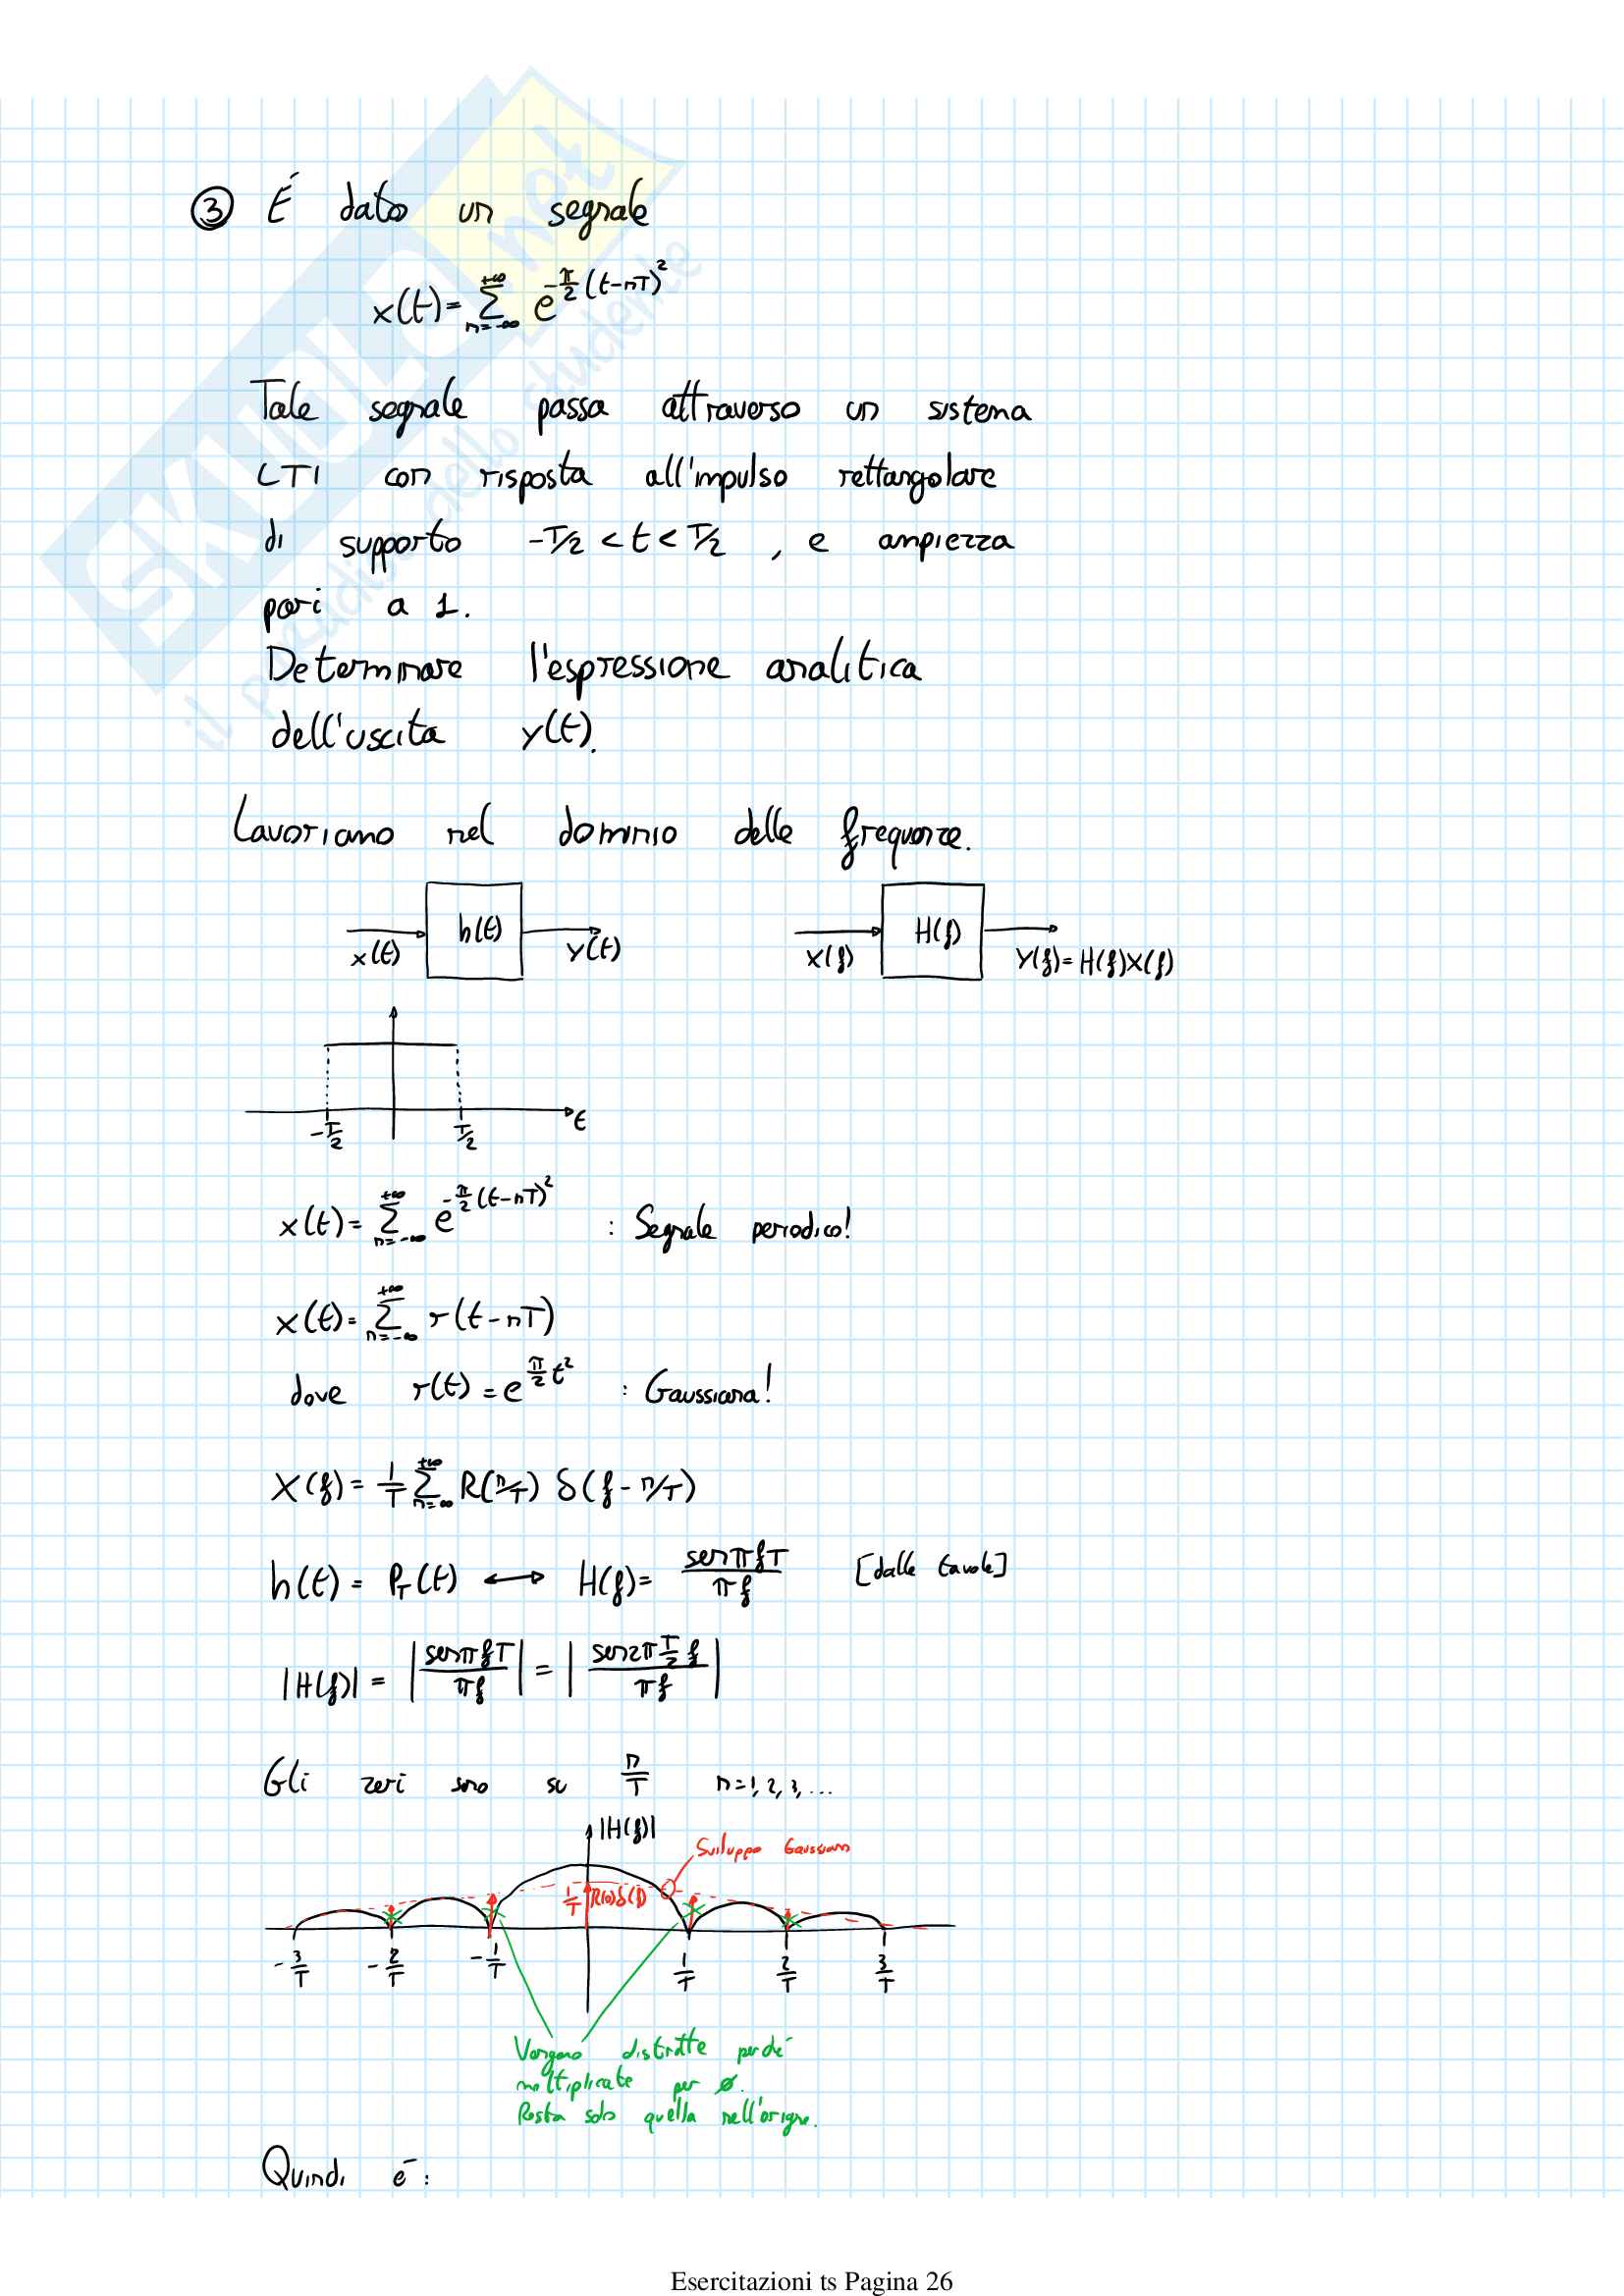 ③ É dato un segnale
x(t)=∑_{n=-∞}^{+∞} e^{-π/2 (t-nT)²}
Tale segnale passa attraverso un sistema
LTI con risposta all'impulso rettangolare
di supporto -T/2 < t < T/2 , e ampiezza
pari a 1.
Determinare l'espressione analitica
dell'uscita y(t).
Lavoriamo nel dominio delle frequenze.
x(t) h(t) y(t) X(f) H(f) Y(f)=H(f)X(f)
-T/2 T/2 t
x(t)=∑_{n=-∞}^{+∞} e^{-π/2 (t-nT)²} : Segnale periodico!
x(t)=∑_{n=-∞}^{+∞} r(t-nT)
dove r(t)=e^{π/2 t²} : Gaussiana!
X(f)=1/T ∑_{n=∞}^{+∞} R(n/T) δ(f-n/T)
h(t)= P_T(t) ⟷ H(f)= senπfT/πf [dalle tavole]
|H(f)| = |senπfT/πf| = |sen2π T/2 f/πf|
Gli zeri sono su n/T n=1,2,3,...
|H(f)|
Sviluppo Gaussiana
1/T R(0)δ(f)
-3/T -2/T -1/T 1/T 2/T 3/T
Vengono distrutte perché
moltiplicate per ∅.
Resta solo quella nell'origine.
Quindi é:
SKUOLA.net
il paradiso dello studente
Esercitazioni ts Pagina 26